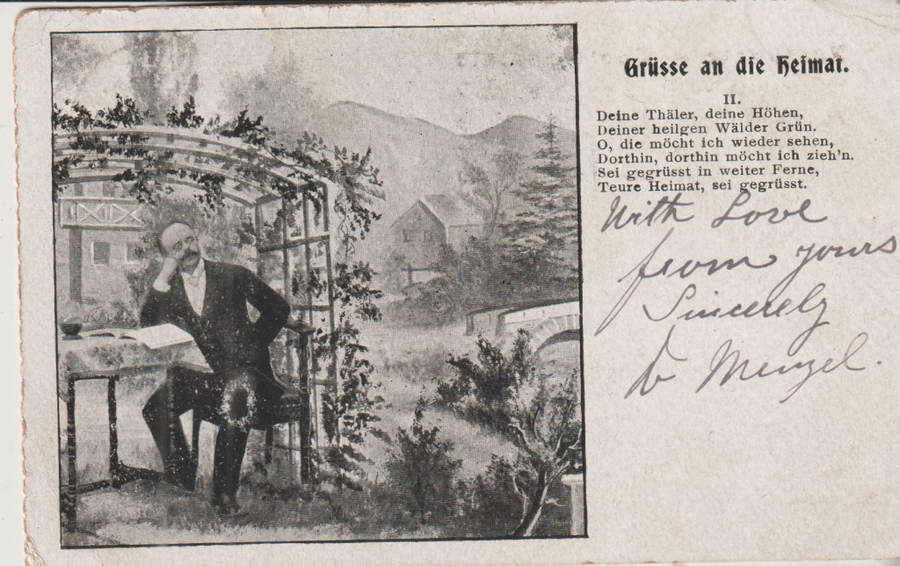 Grüsse an die Heimat.
II.
Deine Thäler, deine Höhen,
Deiner heilgen Wälder Grün.
O, die möcht ich wieder sehen,
Dorthin, dorthin möcht ich zieh'n.
Sei gegrüsst in weiter Ferne,
Teure Heimat, sei gegrüsst.
With Love
from yours
Sincerely
Menzel.